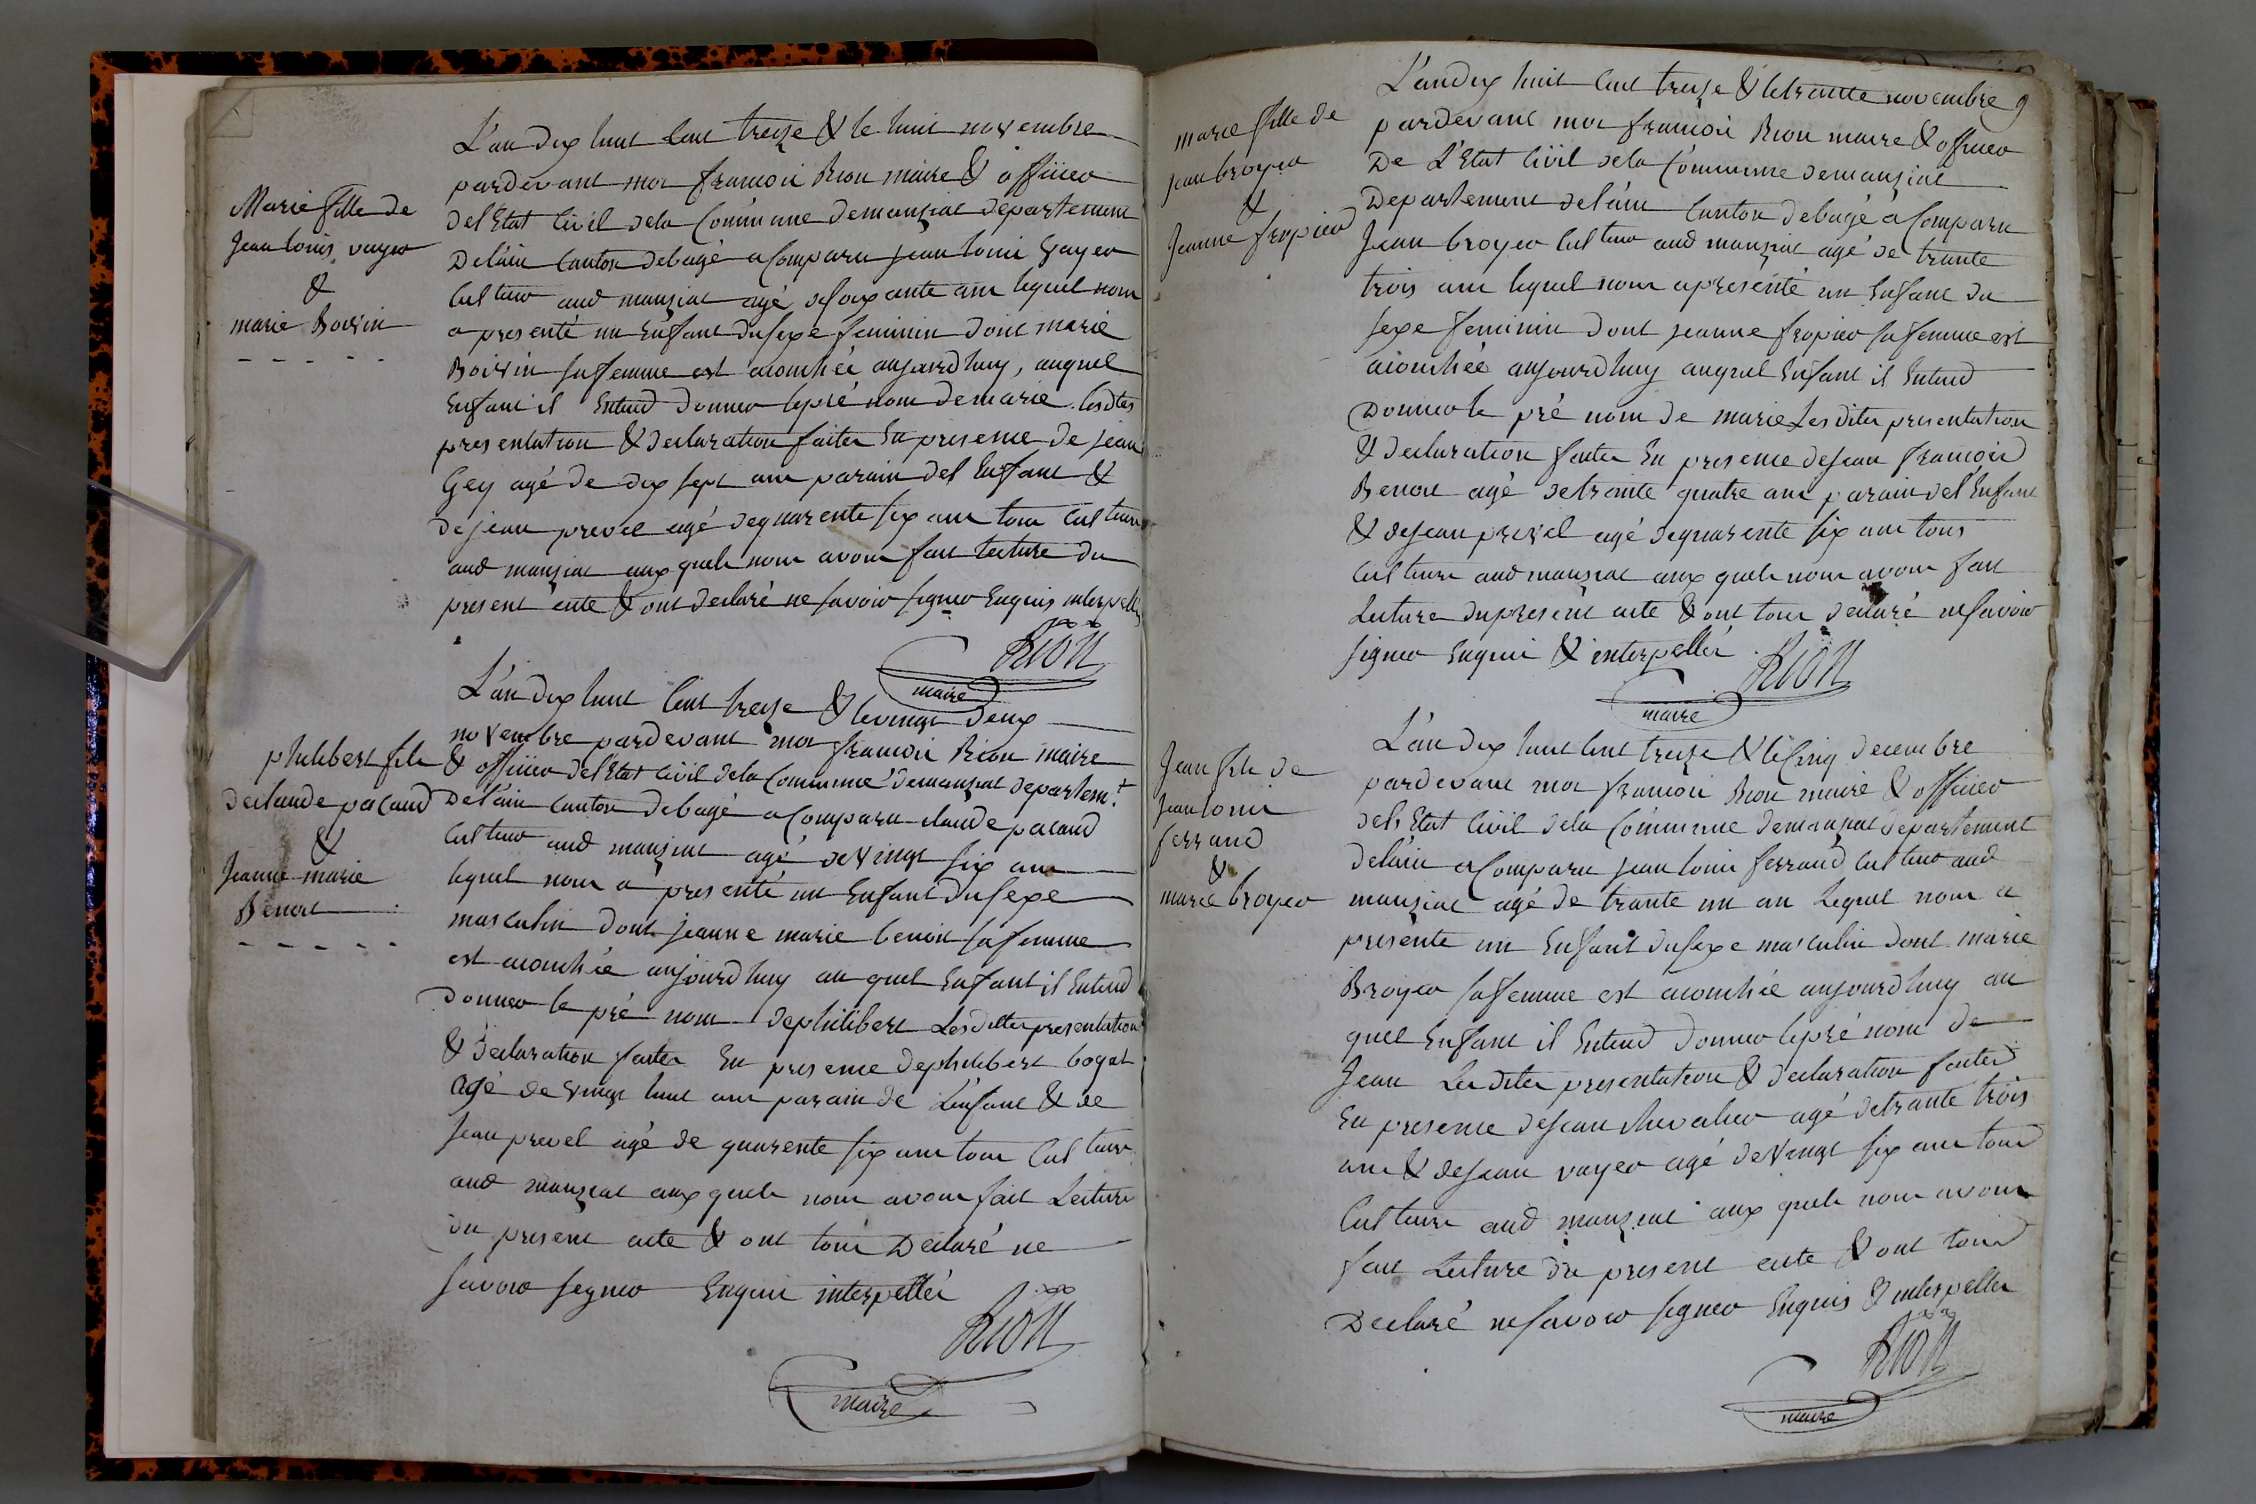 Marie fille de
Jean louis vayer
&
marie Boivin
L'an dix huit cent treize & le huit novembre
pardevant moi francois Rion maire & officier
de l'Etat Civil de la Commune de manziat departement
De lain Canton de bagé a Comparu jean louis vayer
Cultiver aud manziat agé de soixante ans lequel nous
a presenté un Enfant du sexe feminin dont marie
Boivin sa femme est acouchée aujourdhuy, auquel
Enfant il Entend donner le pré nom de marie les dtes
presentation & declaration faites En presence de jean
Gey agé de dix sept ans parain del Enfant &
de jean prevel agé de quarente six ans tous Cultiveurs
aud manziat aux quels nous avons fait lecture du
present acte & ont declaré ne savoir signer Enquis interpellés
Rion
maire
philibert fils
de claude pacaud
&
Jeanne marie
Benoit
L'an dix huit Cent treize & le vingt deux
novembre pardevant moi francois Rion maire
& officier de l'Etat Civil de la Commune de manziat departemt
De l'ain Canton de bagé a Comparu claude pacaud
Cultiver aud manziat agé de vingt six ans
lequel nous a presenté un Enfant du sexe
masculin dont jeanne marie benoit sa femme
est acouchée aujourdhuy au quel Enfant il Entend
Donner le pré nom de philibert Les dites presentation
& declaration faites En presence de philibert bogat
agé de vingt huit ans parain de L'enfant & de
Jean prevel agé de quarente six ans tous Cultiveurs
aud manziat aux quels nous avons fait Lecture
du present acte & ont tous Declaré ne
savoir signer Enquis interpellés
Rion
maire
marie fille de
jean broyer
&
Jeanne fropier
L'an dix huit Cent treize & le trante novembre 9
pardevant moi francois Rion maire & officier
De L'Etat Civil de la Commune de manziat
Departement de l'ain Canton de bagé a Comparu
Jean broyer Cultiver aud manziat agé de trante
trois ans lequel nous a presenté un Enfant du
sexe feminin dont jeanne fropier sa femme est
acouchée aujourdhuy auquel Enfant il Entend
Donner le pré nom de marie Les dites presentation
& declaration faites En presence de jean francois
Benoit agé de trante quatre ans parain del Enfant
& de jean prevel agé de quarente six ans tous
Cultiveurs aud manziat aux quels nous avons fait
Lecture du present acte & ont tous declaré ne savoir
signer Enquis & interpellés
Rion
maire
Jean fils de
jean louis
ferrand
&
marie broyer
L'an dix huit Cent treize & le Cinq decembre
pardevant moi francois Rion maire & officier
del Etat Civil de la Commune de manziat departement
de l'ain a Comparu jean louis ferrand Cultiver aud
manziat agé de trante un an Lequel nous a
presente un Enfant du sexe masculin dont marie
Broyer sa femme est acouchée aujourdhuy au
quel Enfant il Entend donner le pré nom de
Jean Les dites presentation & declaration faites
En presence de jean chevalier agé de trante trois
ans & de jean vayer agé de vingt six ans tous
Cultiveurs aud manziat aux quels nous avons
fait Lecture du present acte & ont tous
Declaré ne savoir signer Enquis & interpellés
Rion
maire